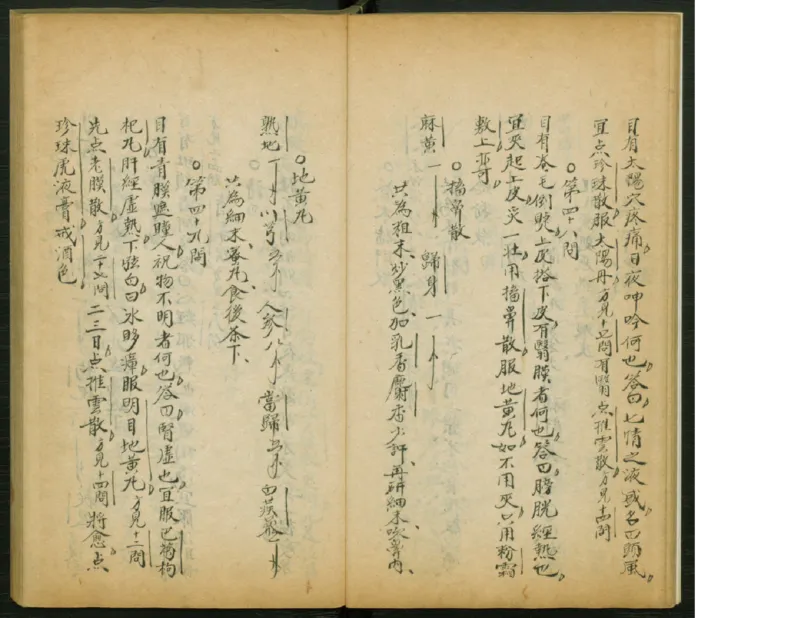 目有太陽穴疼痛日夜呻吟何也答曰七情之液或名曰頭風
宜点珍珠散服太陽丹方見十五問有翳点推雲散方見十四問
○第四十八問
目有拳毛倒睫上皮搭下皮有翳膜者何也答曰膀胱經熱也
宜灸起上皮灸一壯用搐鼻散服地黄丸如不用灸只用粉霜
敷上亦可
○搐鼻散
麻黄一 歸身一
共為粗末炒黑色加乳香麝香少許再研細末吹鼻内
○地黄丸
熟地 川芎 人參 當歸 白蒺藜一
共為細末蜜丸食後茶下
○第四十九問
目有青膜遮睛人視物不明者何也答曰腎虚也宜服巴菊枸
杞丸肝經虚熱下 白曰氷 瘴服明目地黄丸方見十二問
先点老膜散方見 問二三日点推雲散方見十四問將愈点
珍珠虎液膏戒酒色